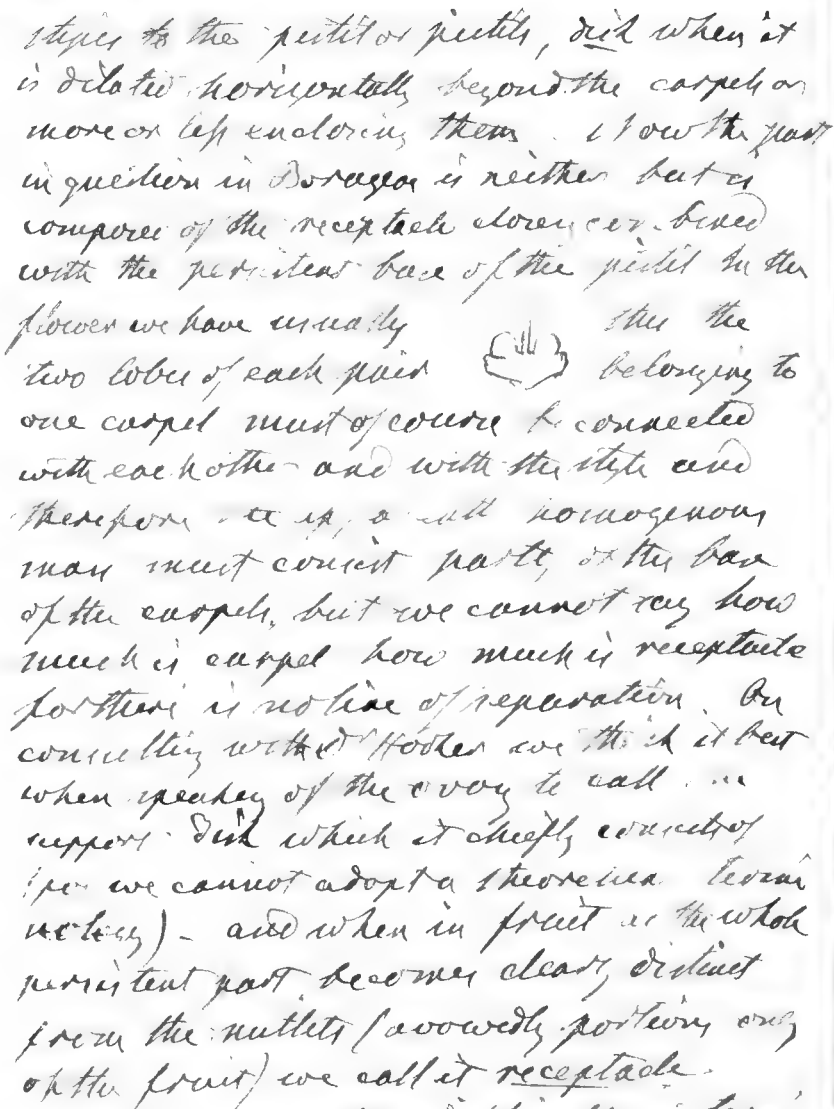 stipes to the pistil or pistils, disk when it
is dilated horizontally beyond the carpels or
more or less enclosing them. Now the part
in question in Borageae is neither but is
composed of the receptacle closely combined
with the persistent base of the pistil In the
flower we have usually thus the
two lobes of each pair belonging to
one carpel must of course be connected
with each other and with the style and
therefore homogenous
mass must consist partly of the base
of the carpels, but we cannot say how
much is carpel how much is receptacle
for there is no line of separation. On
consulting with Dr Hooker we think it best
when speaking of the ovary to call
support disk which it chiefly consists of
(for we cannot adopt a theoretical termi
nology) - and when in fruit as the whole
persistent part becomes clearly distinct
from the nutlets (avowedly portions only
of the fruit) we call it receptacle.